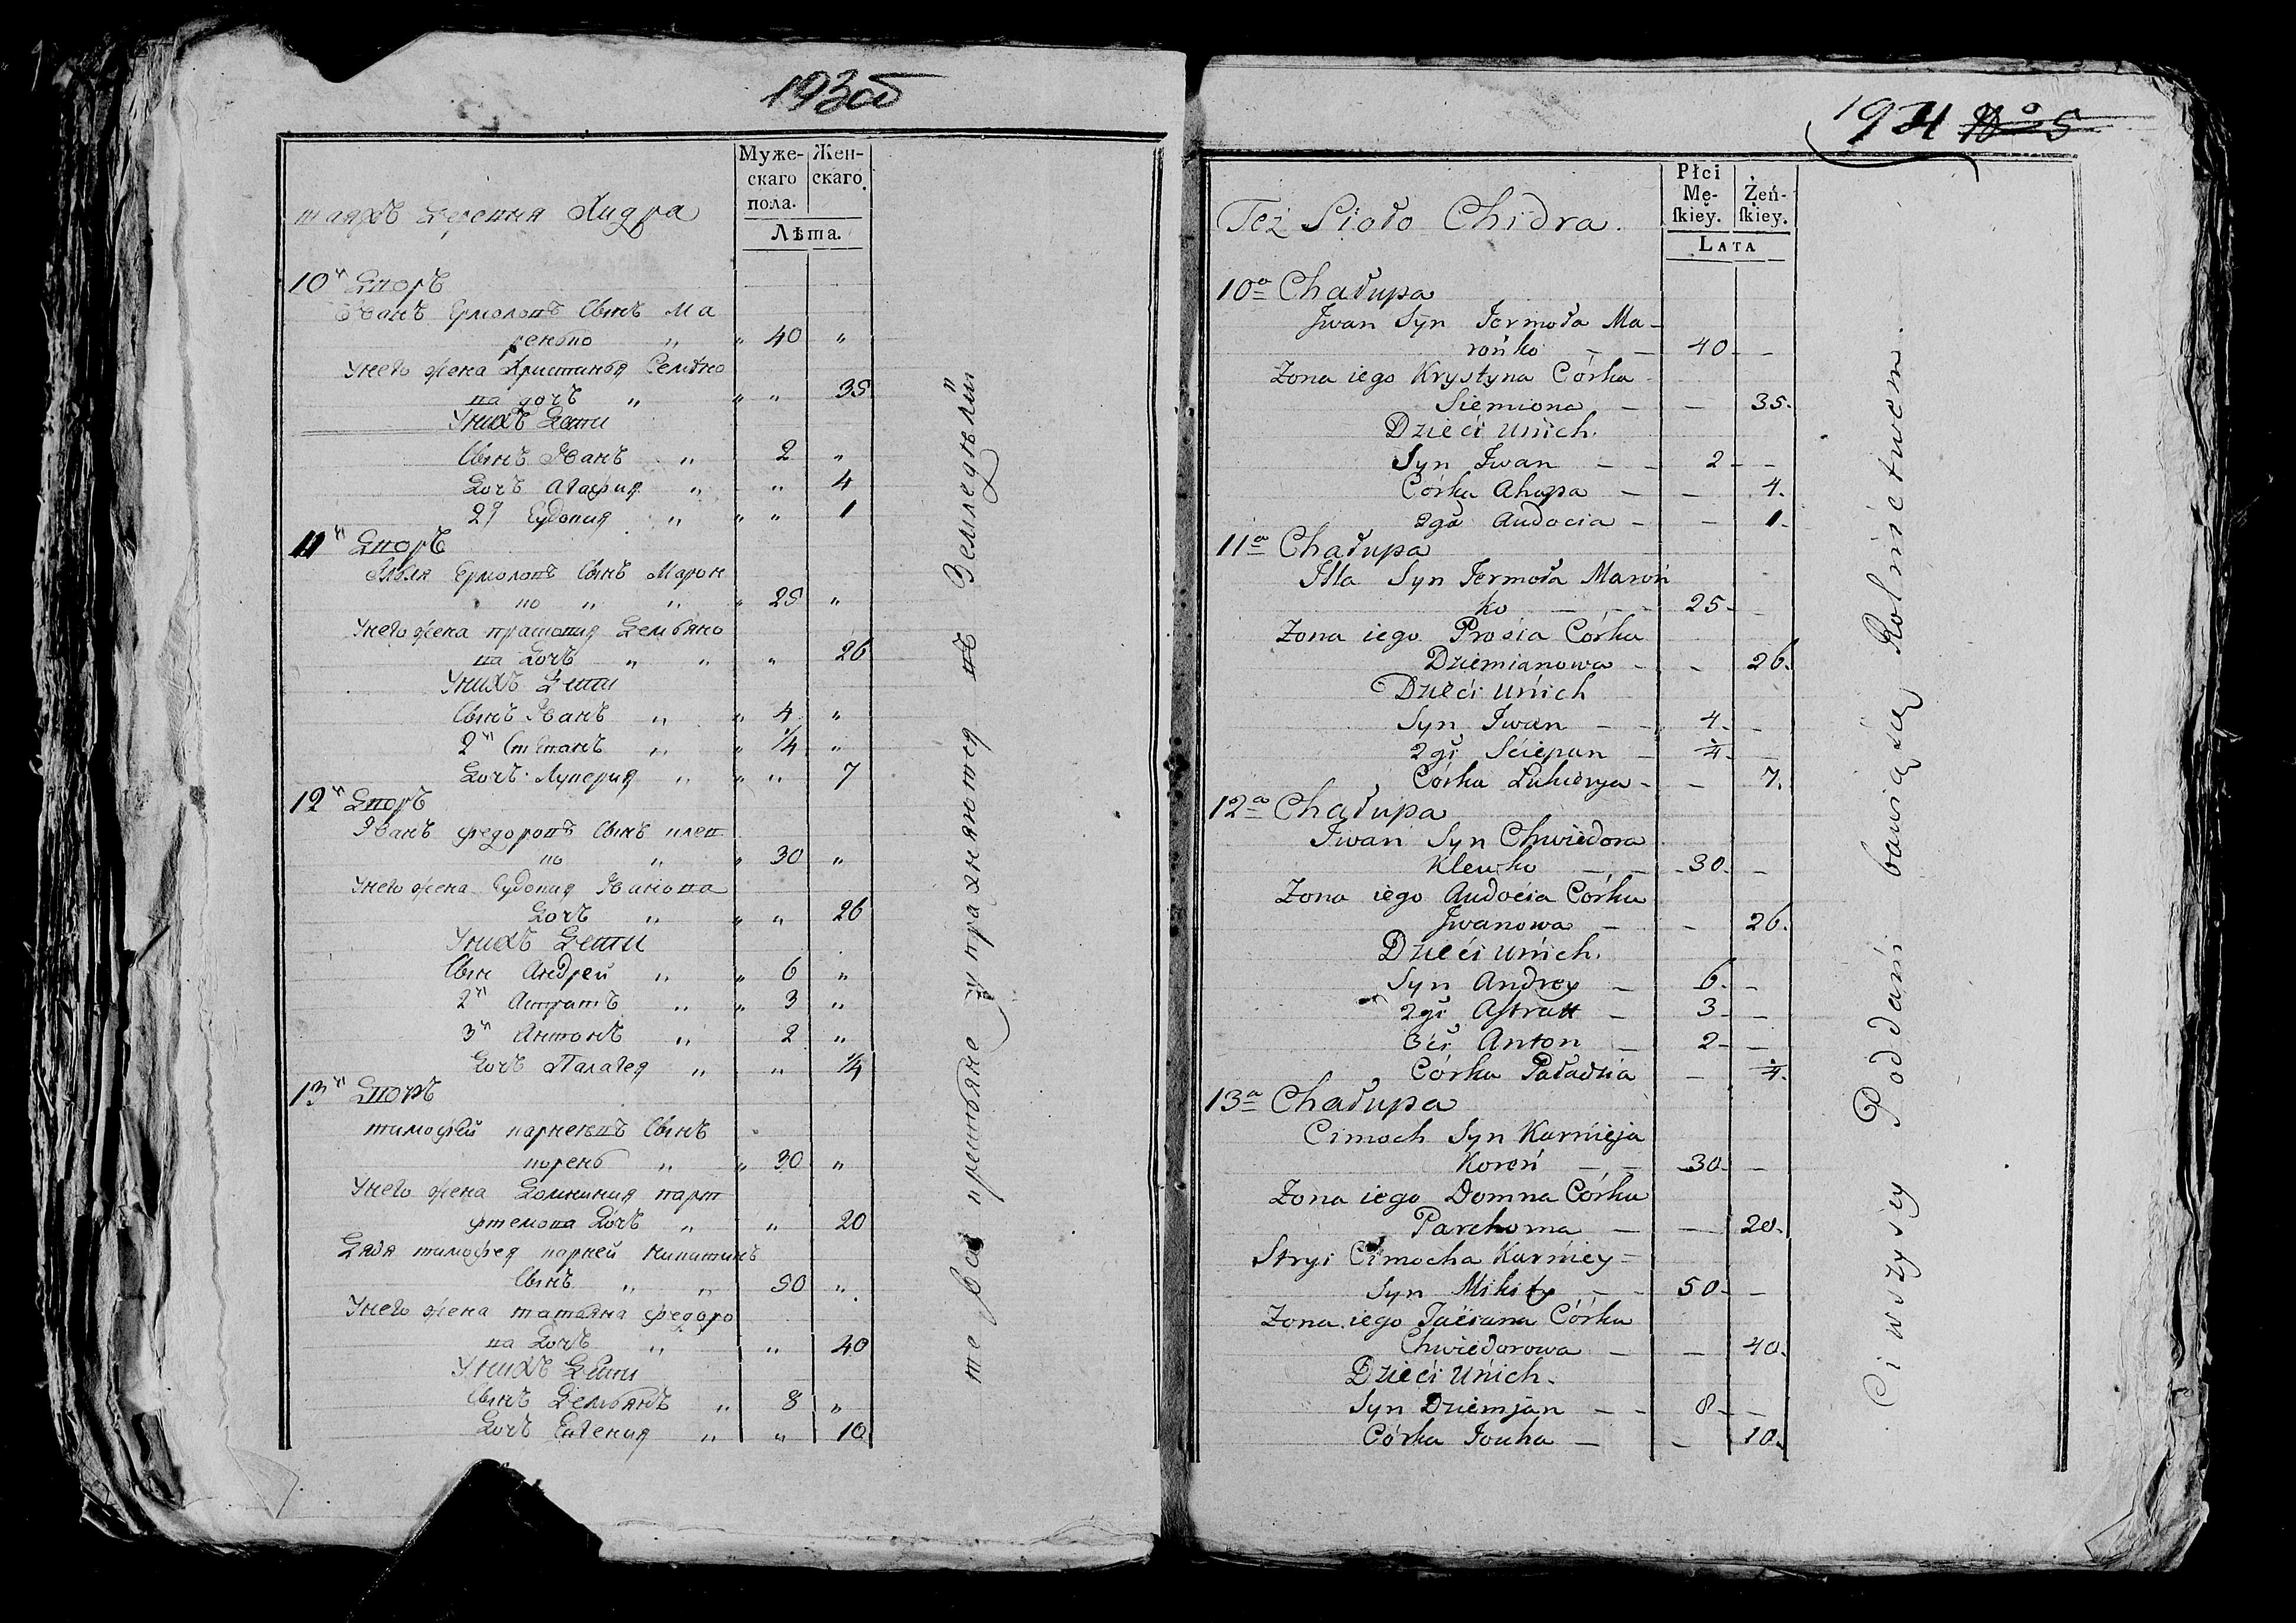 193об
Муже-
скаго
пола.
Жен-
скаго.
Лѣта.
таяжъ деревня Хидра
10й Дворъ
Иванъ Ермоловъ Сынъ Ма
ренько " " 40 "
Унего жена Христинья Семіоно
ва дочъ " " " 35
Унихъ Дети
Сынъ Иванъ " 2 "
Дочъ Агафия " " 4
2я Еудокия " " " 1
11й Дворъ
Илья Ермоловъ Сынъ Марон
ко " " " 25 "
Унего жена прасковия Демьяно
ва Дочъ " " " 26
Унихъ Дети
Сынъ Иванъ " " 4 "
2й Степанъ " " 1/4 "
Дочъ Лукерия " " " 7
12й Дворъ
Иванъ федоровъ Сынъ клев
ко " " 30 "
Унего жена Еудокия Иванова
Дочъ " " " 26
Унихъ Дети
Сын Андрей " " 6 "
2й Астратъ " " 3 "
3й Антонъ " 2 "
Дочъ Палагея " " 1/4
13й Дворъ
тимофей карнеевъ Сынъ
корень " " 30 "
Унего жена Домникия парт
фтемова Дочъ " " 20
Дядя тимофея карней никитинъ
Сынъ " " 50 "
Унего жена татьяна федоро
ва Дочъ " " 40
Унихъ Дети
Сынъ Демьянъ " 8 "
Дочъ Евгения " " 10
те все крестьяне упражняются въ Земледелїи
194 No 5
Płci
Mę-
skiey.
Żeń-
skiey.
LATA
Też Sioło Chidra.
10a Chałupa
Jwan Syn Jermoła Ma-
rońko - - 40 - -
Żona iego Krystyna Córka
Siemiona - - 35.
Dzieći unich.
Syn Jwan - - 2 - -
Córka Ahapa - - 4.
2ga Audocia - - 1.
11a Chałupa
Jlla Syn Jermoła Maroń
ko - - - 25 -
Żona iego Prosia Córka
Dziemianowa - - 26.
Dzieći unich
Syn Jwan - - 4 -
2gi Sciepan - 1/4 -
Córka Lukierya - - 7.
12a Chałupa
Jwan Syn Chwiedora
Klewko - - 30 -
Żona iego Audocia Córka
Jwanowa - - 26.
Dzieći unich.
Syn Andrey - 6 - -
2gi Astratt - 3 - -
3ci Anton - 2 - -
Córka Paładzia - 1/4.
13a Chałupa
Cimoch Syn Karnieja
Koreń - - 30 - -
Żona iego Domna Córka
Parchoma - - 20.
Stryi Cimocha Karniey -
Syn Mikity - - 50 - -
Żona iego Taciana Córka
Chwiedorowa - - 40.
Dzieći unich.
Syn Dziemjan - - 8 - -
Córka Jouha - - 10.
Ci wszysey Poddani bawią się Rolnictwem.